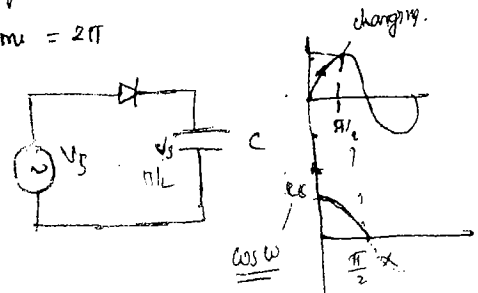 = 2π
changing.
Vs
Vs
π/2
C
π/2
cos ω
π
2